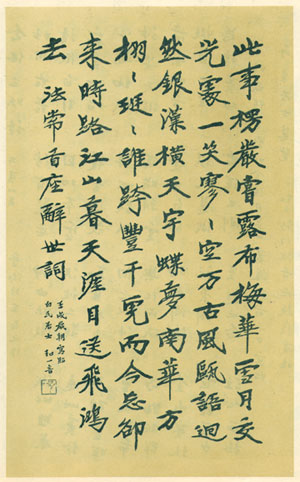 此事楞嚴嘗露布梅華雪月交
光處一笑寥〻空万古風甌語迥
然銀漢橫天宇蝶夢南華方
栩〻斑〻誰跨豐干虎而今忘卻
来時路江山暮天涯目送飛鴻
去 法常首座辭世詞
壬戌歲朝寫貽
白民居士 弘一音